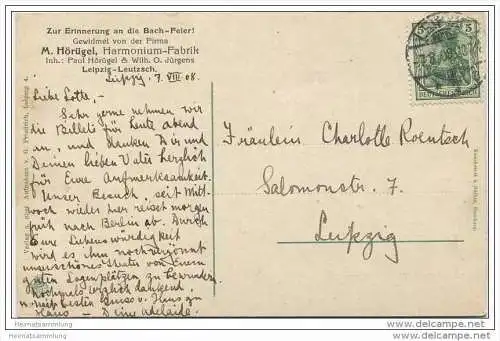 Zur Erinnerung an die Bach-Feier!
Gewidmet von der Firma
M. Hörügel, Harmonium-Fabrik
Inh.: Paul Hörügel & Wilh. O. Jürgens
Leipzig-Leutzsch.
Leipzig, 7. VIII 08.
Liebe Lotte, -
Sehr gerne nehmen wir
die Billets für heute abend
an, und danken Dir und
Deinen lieben Vater herzlich
für Eure Aufmerksamkeit.
Unser Besuch, seit Mitt-
woch wieder hier reiset morgen
früh nach Berlin ab. Durch
Eure Liebenswürdigkeit
wird es ihm noch vergönnt
unser schönes Theater von Euren
guten Logenplätzen zu bewundern
Nochmals herzlich dankend,
mit besten Gruss v. Haus zu
Haus - Deine Adelaide.
Fräulein Charlotte Roentsch
Salomonstr. 7.
Leipzig
5
DEUTSCHES REICH
Heimatsammlung
www.heimatsammlung.de
www.delcampe.net